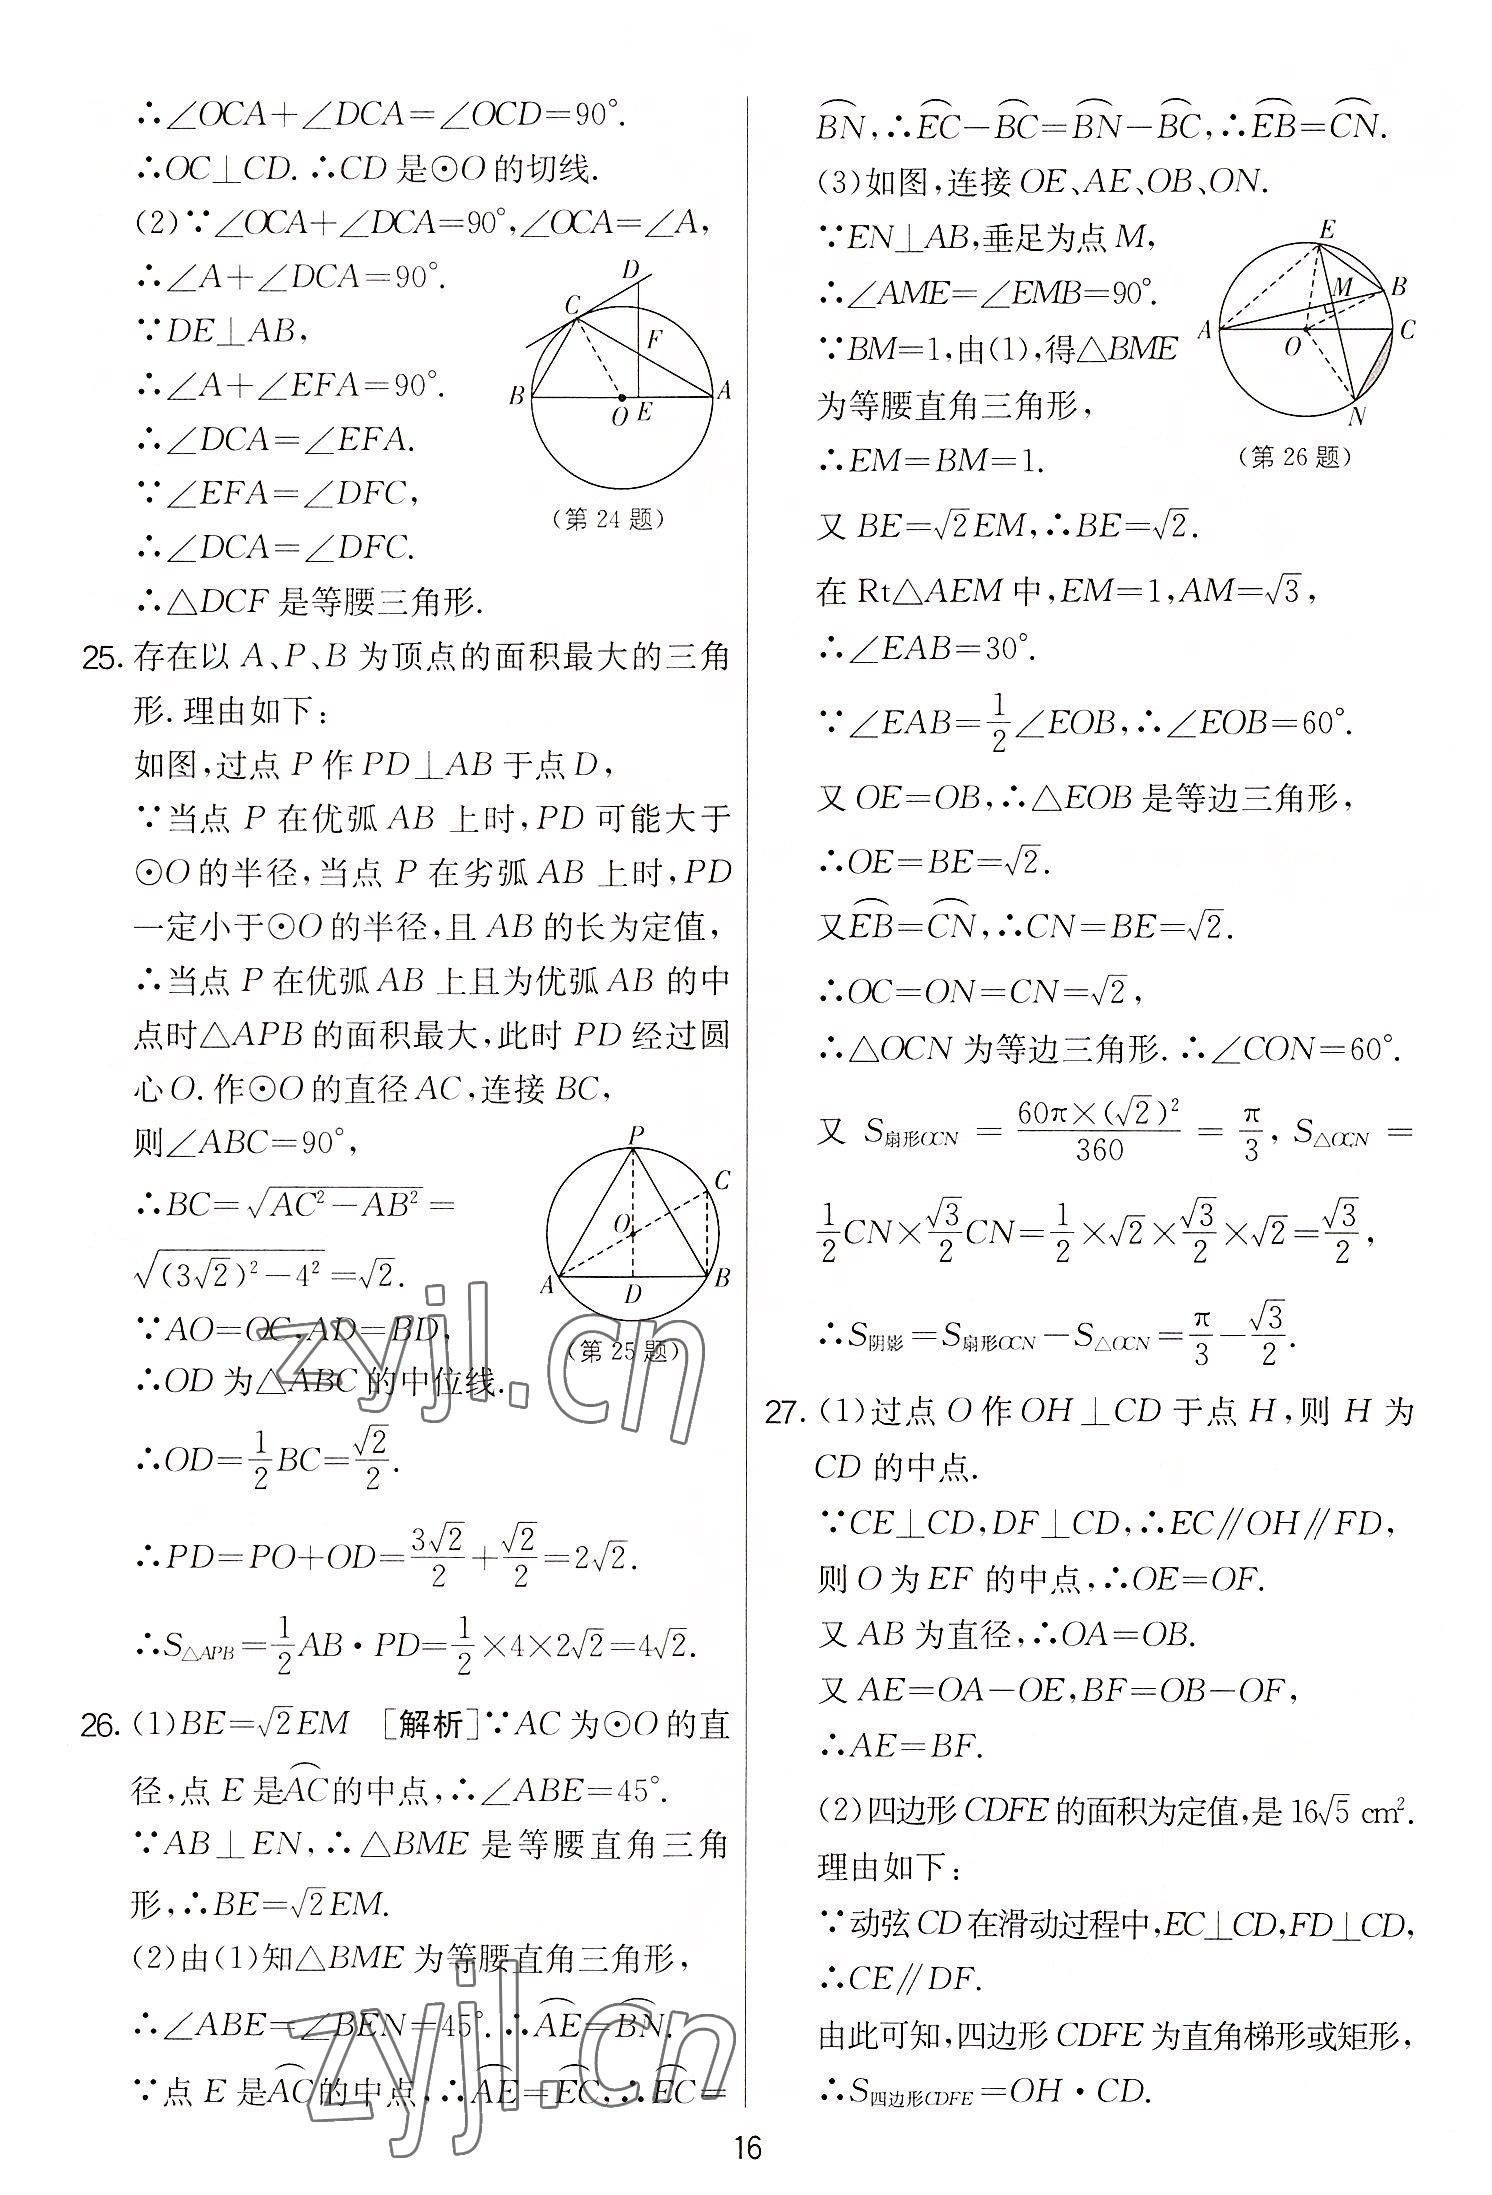 ∴∠OCA+∠DCA=∠OCD=90°.
∴OC⊥CD.∴CD是⊙O的切线.
(2)∵∠OCA+∠DCA=90°,∠OCA=∠A,
∴∠A+∠DCA=90°.
∵DE⊥AB,
∴∠A+∠EFA=90°.
∴∠DCA=∠EFA.
∵∠EFA=∠DFC,
∴∠DCA=∠DFC.
∴△DCF是等腰三角形.
D
C
F
B
O
E
A
(第24题)
25. 存在以A、P、B为顶点的面积最大的三角
形.理由如下:
如图,过点P作PD⊥AB于点D,
∵当点P在优弧AB上时,PD可能大于
⊙O的半径,当点P在劣弧AB上时,PD
一定小于⊙O的半径,且AB的长为定值,
∴当点P在优弧AB上且为优弧AB的中
点时△APB的面积最大,此时PD经过圆
心O.作⊙O的直径AC,连接BC,
则∠ABC=90°,
∴BC=√(AC²−AB²)=
√((3√2)²−4²)=√2.
∵AO=OC,AD=BD,
∴OD为△ABC的中位线.
P
C
O
A
D
B
(第25题)
∴OD=1/2BC=√2/2.
∴PD=PO+OD=3√2/2+√2/2=2√2.
∴S△APB=1/2AB·PD=1/2×4×2√2=4√2.
26. (1)BE=√2EM [解析]∵AC为⊙O的直
径,点E是⌒AC的中点,∴∠ABE=45°.
∵AB⊥EN,∴△BME是等腰直角三角
形,∴BE=√2EM.
(2)由(1)知△BME为等腰直角三角形,
∴∠ABE=∠BEN=45°.∴⌒AE=⌒BN.
∵点E是⌒AC的中点,∴⌒AE=⌒EC,∴⌒EC=
⌒BN,∴⌒EC−⌒BC=⌒BN−⌒BC,∴⌒EB=⌒CN.
(3)如图,连接OE、AE、OB、ON.
∵EN⊥AB,垂足为点M,
∴∠AME=∠EMB=90°.
∵BM=1,由(1),得△BME
为等腰直角三角形,
∴EM=BM=1.
E
M
B
A
O
C
N
(第26题)
又BE=√2EM,∴BE=√2.
在Rt△AEM中,EM=1,AM=√3,
∴∠EAB=30°.
∵∠EAB=1/2∠EOB,∴∠EOB=60°.
又OE=OB,∴△EOB是等边三角形,
∴OE=BE=√2.
又⌒EB=⌒CN,∴CN=BE=√2.
∴OC=ON=CN=√2,
∴△OCN为等边三角形.∴∠CON=60°.
又S扇形OCN=60π×(√2)²/360=π/3,S△OCN=
1/2CN×√3/2CN=1/2×√2×√3/2×√2=√3/2,
∴S阴影=S扇形OCN−S△OCN=π/3−√3/2.
27. (1)过点O作OH⊥CD于点H,则H为
CD的中点.
∵CE⊥CD,DF⊥CD,∴EC∥OH∥FD,
则O为EF的中点,∴OE=OF.
又AB为直径,∴OA=OB.
又AE=OA−OE,BF=OB−OF,
∴AE=BF.
(2)四边形CDFE的面积为定值,是16√5 cm².
理由如下:
∵动弦CD在滑动过程中,EC⊥CD,FD⊥CD,
∴CE∥DF.
由此可知,四边形CDFE为直角梯形或矩形,
∴S四边形CDFE=OH·CD.
16
zyjl.cn
zyjl.cn